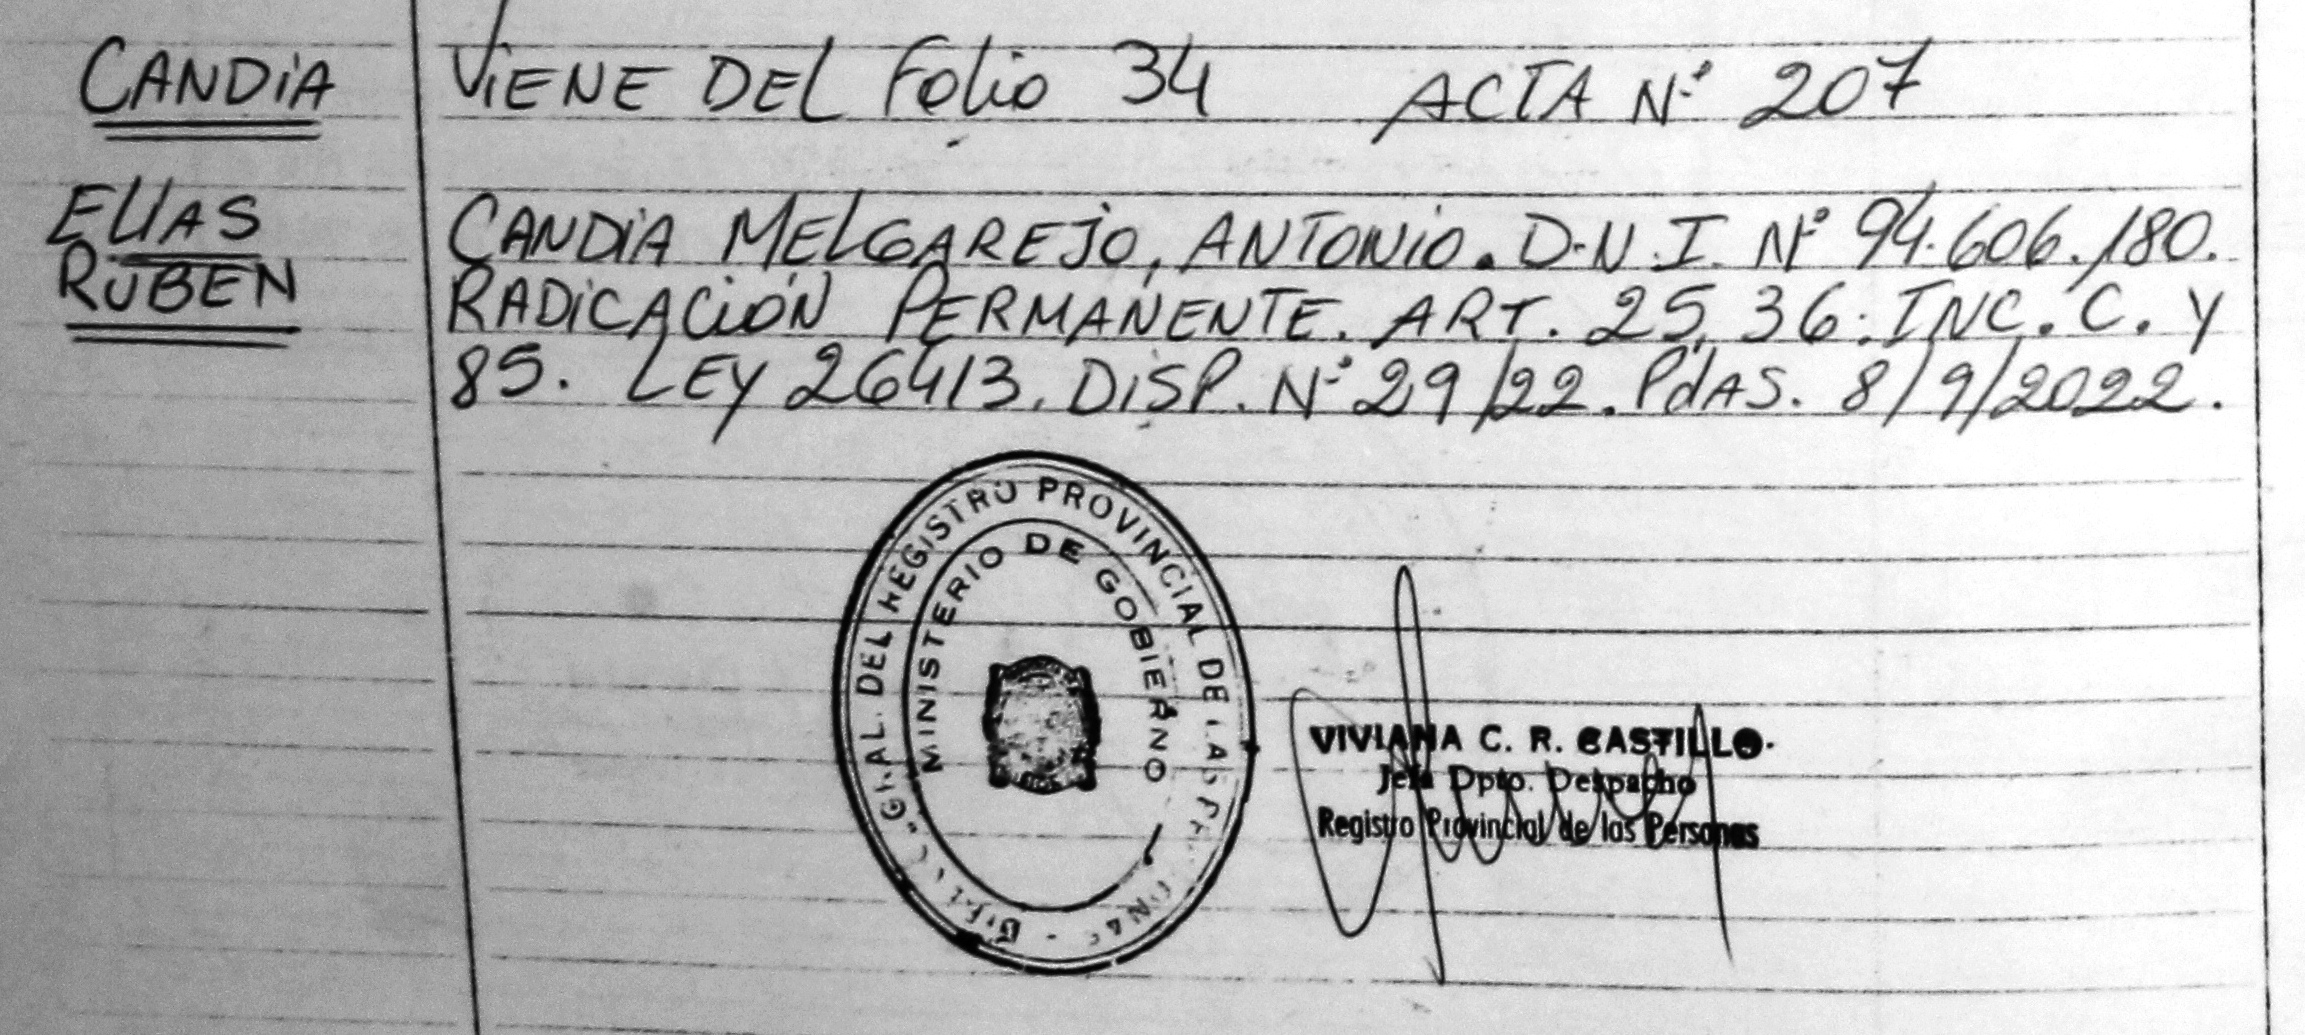 CANDiA
ELIAS
RUBEN
ViENE DEL Folio 34 ACTA Nº 207
CANDiA MELGAREJO, ANTONiO. D.N.I. Nº 94.606.180.
RADiCACiÓN PERMANENTE. ART. 25, 36: INC. C. Y
85. LEY 26413. DiSP. Nº 29/22. PdAS. 8/9/2022.
GRAL. DEL REGISTRO PROVINCIAL DE LAS
MINISTERIO DE GOBIERNO
VIVIANA C. R. CASTILLO
Jefa Dpto. Despacho
Registro Provincial de las Personas